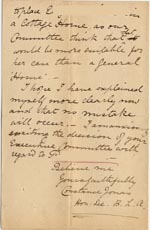 to place E                in
a Cottage Home, as our
Committee think that it
would be more suitable for
her case than a general
Home.
I hope I have explained
myself more clearly now
and that no mistake
will occur. I am anxiously
awaiting the decision of your
Executive Committee with
regard to
Believe me
Yours faithfully
Constance Jones
Hon. Sec.